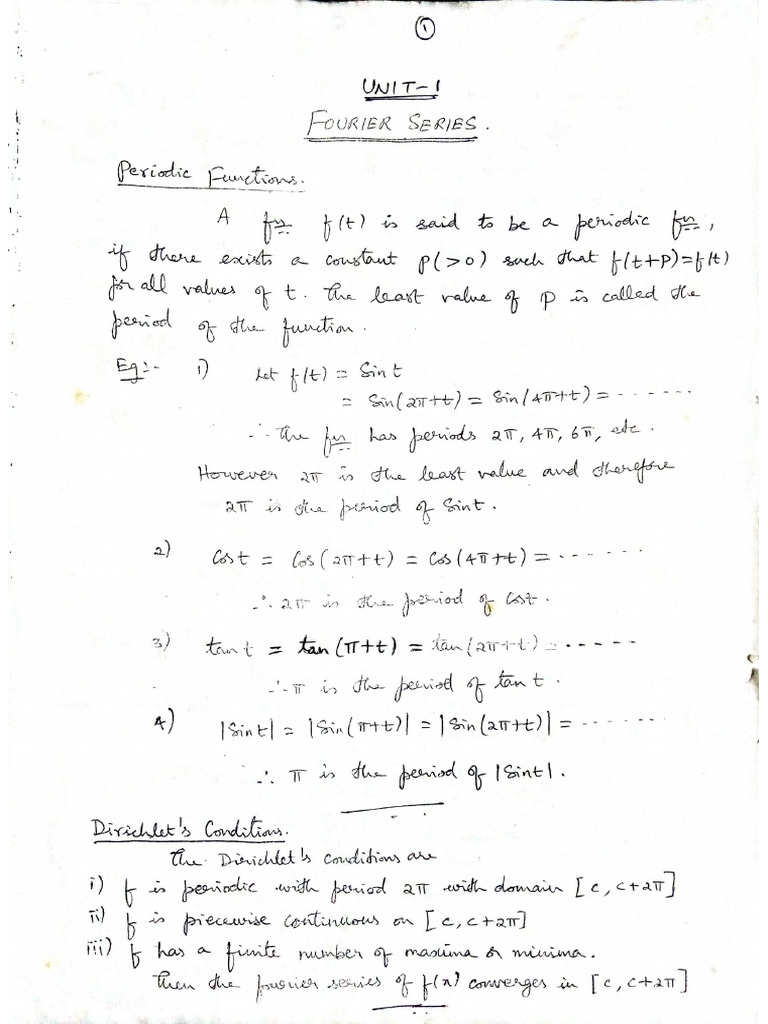 1
UNIT-1
FOURIER SERIES.
Periodic Functions.
A fn f(t) is said to be a periodic fn,
if there exists a constant p(>0) such that f(t+p)=f(t)
for all values of t. The least value of p is called the
period of the function.
Eg:- 1) Let f(t) = Sin t
= Sin(2π+t) = Sin(4π+t) = -------
∴ The fn has periods 2π, 4π, 6π, etc.
However 2π is the least value and therefore
2π is the period of Sint.
2) Cost = Cos(2π+t) = Cos(4π+t) = -------
∴ 2π is the period of Cost.
3) tant = tan(π+t) = tan(2π+t) = ------
∴ π is the period of tan t.
4) |Sint| = |Sin(π+t)| = |Sin(2π+t)| = -------
∴ π is the period of |Sint|.
Dirichlet's Conditions.
The Dirichlet's conditions are
i) f is periodic with period 2π with domain [c, c+2π]
ii) f is piecewise continuous on [c, c+2π]
iii) f has a finite number of maxima or minima.
Then the fourier series of f(x) converges in [c, c+2π]